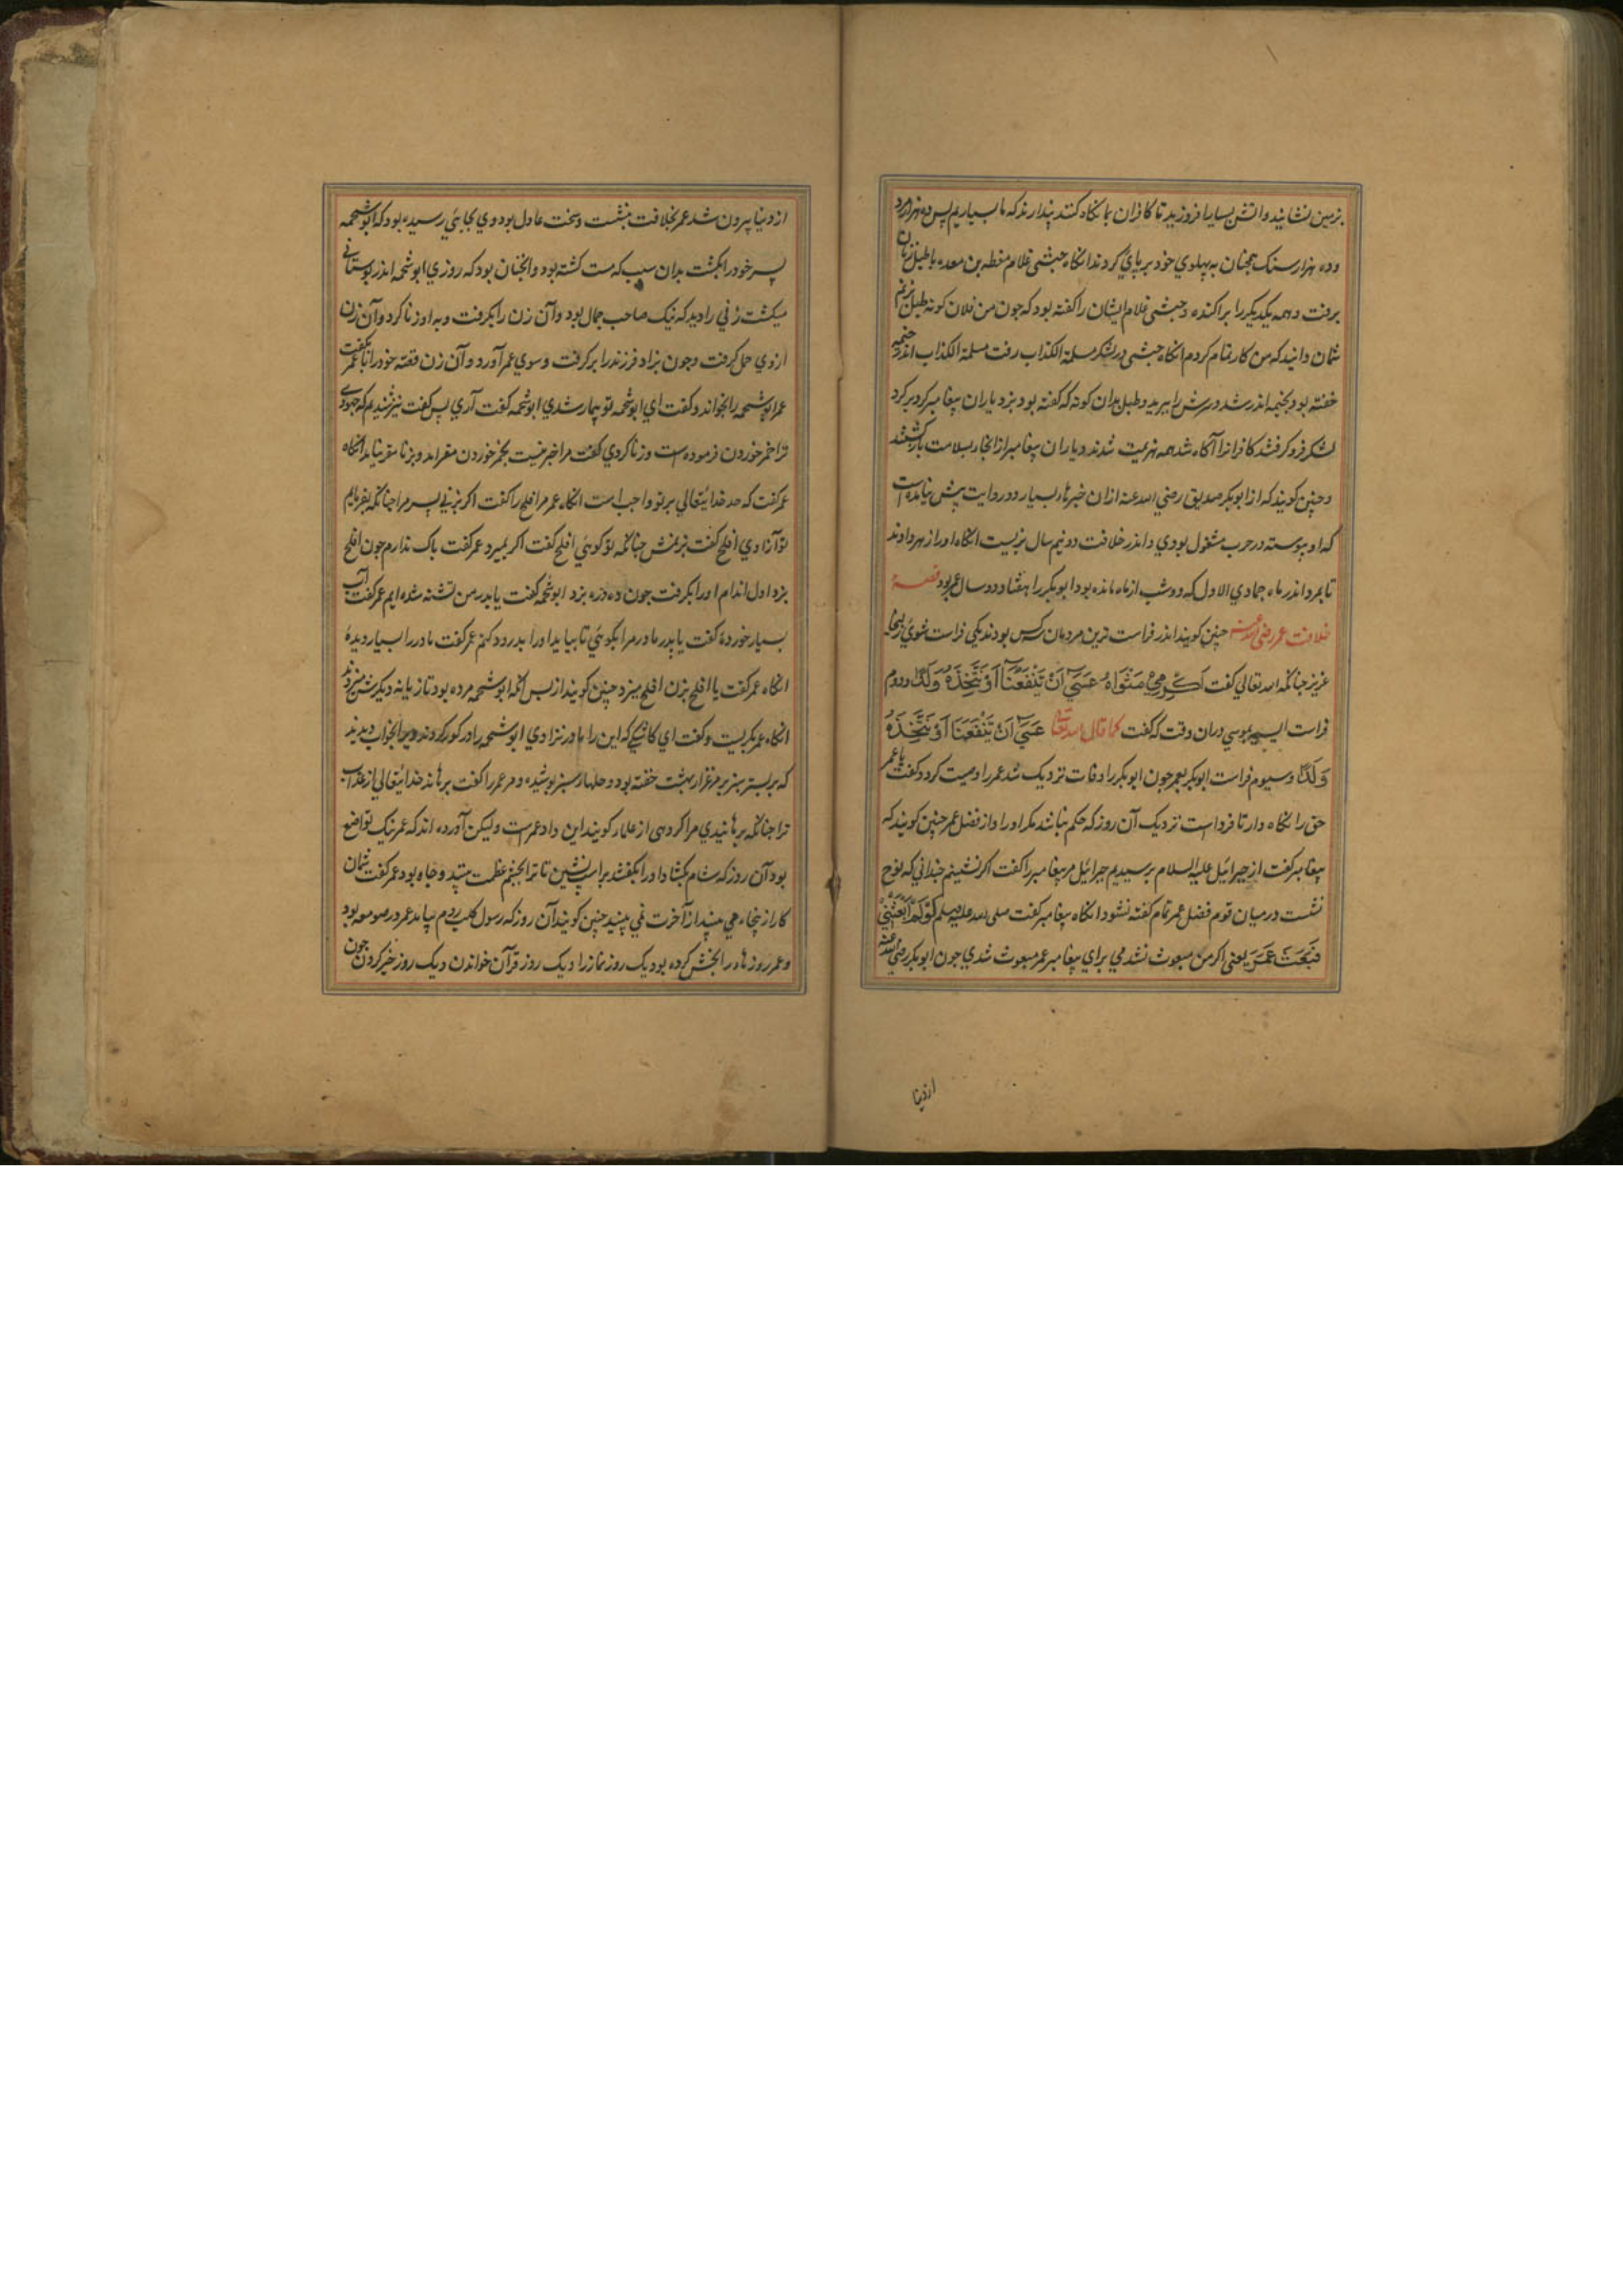 بزمین نشانید و آتش بسیار افروزید تا کافران بما نکاه کنند پندارند که ما بسیاریم پس ده هزار مرد
و ده هزار سنک همچنان به پهلوی خود بر پای کردند انکاه حبشی غلام باطبل زنان
برفت و همه یکدیکر را براکنده و حبشی غلام ایشان را کفته بود که جون من فلان کونه طبل زنم
شمان دانید که من کار تمام کردم انکاه حبشی در لشکر مسلمة الکذاب رفت مسلمة الکذاب اندر خیمه
خفته بود بخیمه اندر شد و سرش را ببرید و طبل بدان کونه که کفته بود بزد یاران پیغامبر کرد بر کرد
لشکر فرو کرفتند کافرانرا آکاه شد همه هزیمت شدند و یاران پیغامبر از انجا بسلامت بازکشتند
و جنین کویند که از ابوبکر صدیق رضی الله عنه ازان خبرهاء بسیار و روایت پیش نیامده است
که او پیوسته در حرب مشغول بودی و اندر خلافت دو نیم سال بزیست انکاه او را زهر دادند
تا بمرد اندر ماه جمادی الاول که دو شب از ماه مانده بود ابوبکر را هشتاد و دو سال عمر بود قصهٔ
خلافت عمر رضی الله عنه جنین کویند اندر فراست ترین مردمان سه کس بودند یکی فراست شوی زلیخا
عزیز جنانکه الله تعالی کفت اَكْرِمِيْ مَثْوَاهُ عَسَيٓ اَنْ يَّنْفَعَنَآ اَوْ نَتَّخِذَهٗ وَلَدًا و دوم
فراست آسیه بموسی دران وقت که کفت کما قال الله تعالی عَسَيٓ اَنْ يَّنْفَعَنَا اَوْ نَتَّخِذَهٗ
وَلَدًا و سیوم فراست ابوبکر بعمر جون ابوبکر را وفات نزدیک شد عمر را وصیت کرد و کفت یا عمر
حق را نکاه دار تا فرداست نزدیک آن روز که حکم نباشد مکر او را و از فضل عمر جنین کویند که
پیغامبر کفت از جبرائیل علیه السلام برسیدیم جبرائیل مر پیغامبر را کفت اکر نشینم جندانی که نوح
نشست در میان قوم فضل عمر تمام کفته نشود انکاه پیغامبر کفت صلی الله علیه وسلم لَوْ لَمْ اُبْعَثْنِيْ
فَبُعِثَ عُمَرَ یعنی اکر من مبعوث نشدمی برای پیغامبر عمر مبعوث شدی جون ابوبکر رضی الله عنه
از دنیا
از دنیا بیرون شد عمر بخلافت بنشست و سخت عادل بود و وی بجایی رسیده بود که ابوشحمه
پسر خود را بکشت بدان سبب که مست کشته بود و انچنان بود که روزی ابوشحمه اندر بوستانی
میکشت زنی را دید که نیک صاحب جمال بود و آن زن را بکرفت و به او زنا کرد و آن زن
از وی حمل کرفت و جون بزاد فرزند را برکرفت و سوی عمر آورد و آن زن قصه خود را با عمر بکفت
عمر ابوشحمه را بخواند و کفت ای ابوشحمه تو بیمار شدی ابوشحمه کفت آری پس کفت نیز شنیدم که جهودی
ترا خمر خوردن فرموده است و زنا کردی کفت مرا خبر نیست بخمر خوردن مقر امد و بزنا مقر نیامد انکاه
عمر کفت که حد خدایتعالی بر تو واجب است انکاه عمر مر افلح را کفت اکر بزنی پسر مرا جنانکه بفرمایم
تو آزادی افلح کفت بزنمش جنانکه تو کویی افلح کفت اکر بمیرد عمر کفت باک ندارم جون افلح
بزد اول اندام او را بکرفت جون ده دره بزد ابوشحمه کفت یا پدر من تشنه شده ایم عمر کفت آب
بسیار خوردهٔ کفت یا پدر مادر مرا بکویی تا بیاید او را بدرود کنم عمر کفت مادر را بسیار دیدهٔ
انکاه عمر کفت یا افلح بزن افلح میزد جنین کویند از پس آنکه ابوشحمه مرده بود تازیانه دیکرش میزدند
انکاه عمر بکریست و کفت ای کاشکی که این را مادر نزادی ابوشحمه را در کور کردند پدر بخواب دیدند
که بر بستر سبز بر مرغزار بهشت خفته بود و حلهاء سبز پوشیده و مر عمر را کفت برهاند خدایتعالی از عذاب
ترا جنانکه برهانیدی مرا کروهی از علماء کویند این داد عمر است و لیکن آورده اند که عمر نیک تواضع
بود آن روز که شام بکشاد او را بکفتند بر اسب نشین تا ترا بچشم عظمت بینند و جاه بود عمر کفت شمان
کار از پنجاه می بینید از آخرت نمی بینید جنین کویند آن روز که رسول کلب روم بیامد عمر در صومعه بود
و عمر روزهاء را بخش کرده بود یک روز نماز را و یک روز قرآن خواندن و یک روز خبر کردن جون